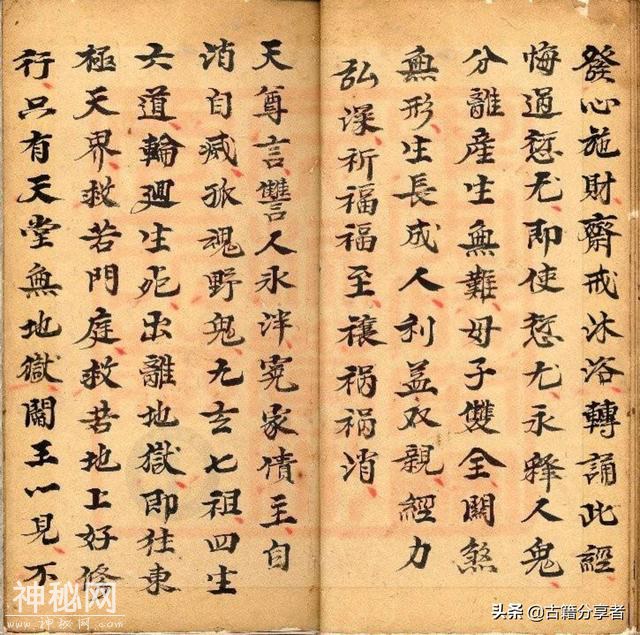 發心施財齋戒沐浴轉誦此經
悔過愆尤即使愆尤永釋人鬼
分離產生無難母子雙全關煞
無形生長成人利益双親經力
弘深祈福福至禳祸祸消
天尊言讐人氷泮冤家債主自
消自滅孤魂野鬼九玄七祖四生
六道輪廻生死出離地獄即往東
極天界救苦門庭救苦地上好修
行只有天堂無地獄閻王一見不
神秘网
www.shenmiw.com
头条 @古籍分享者